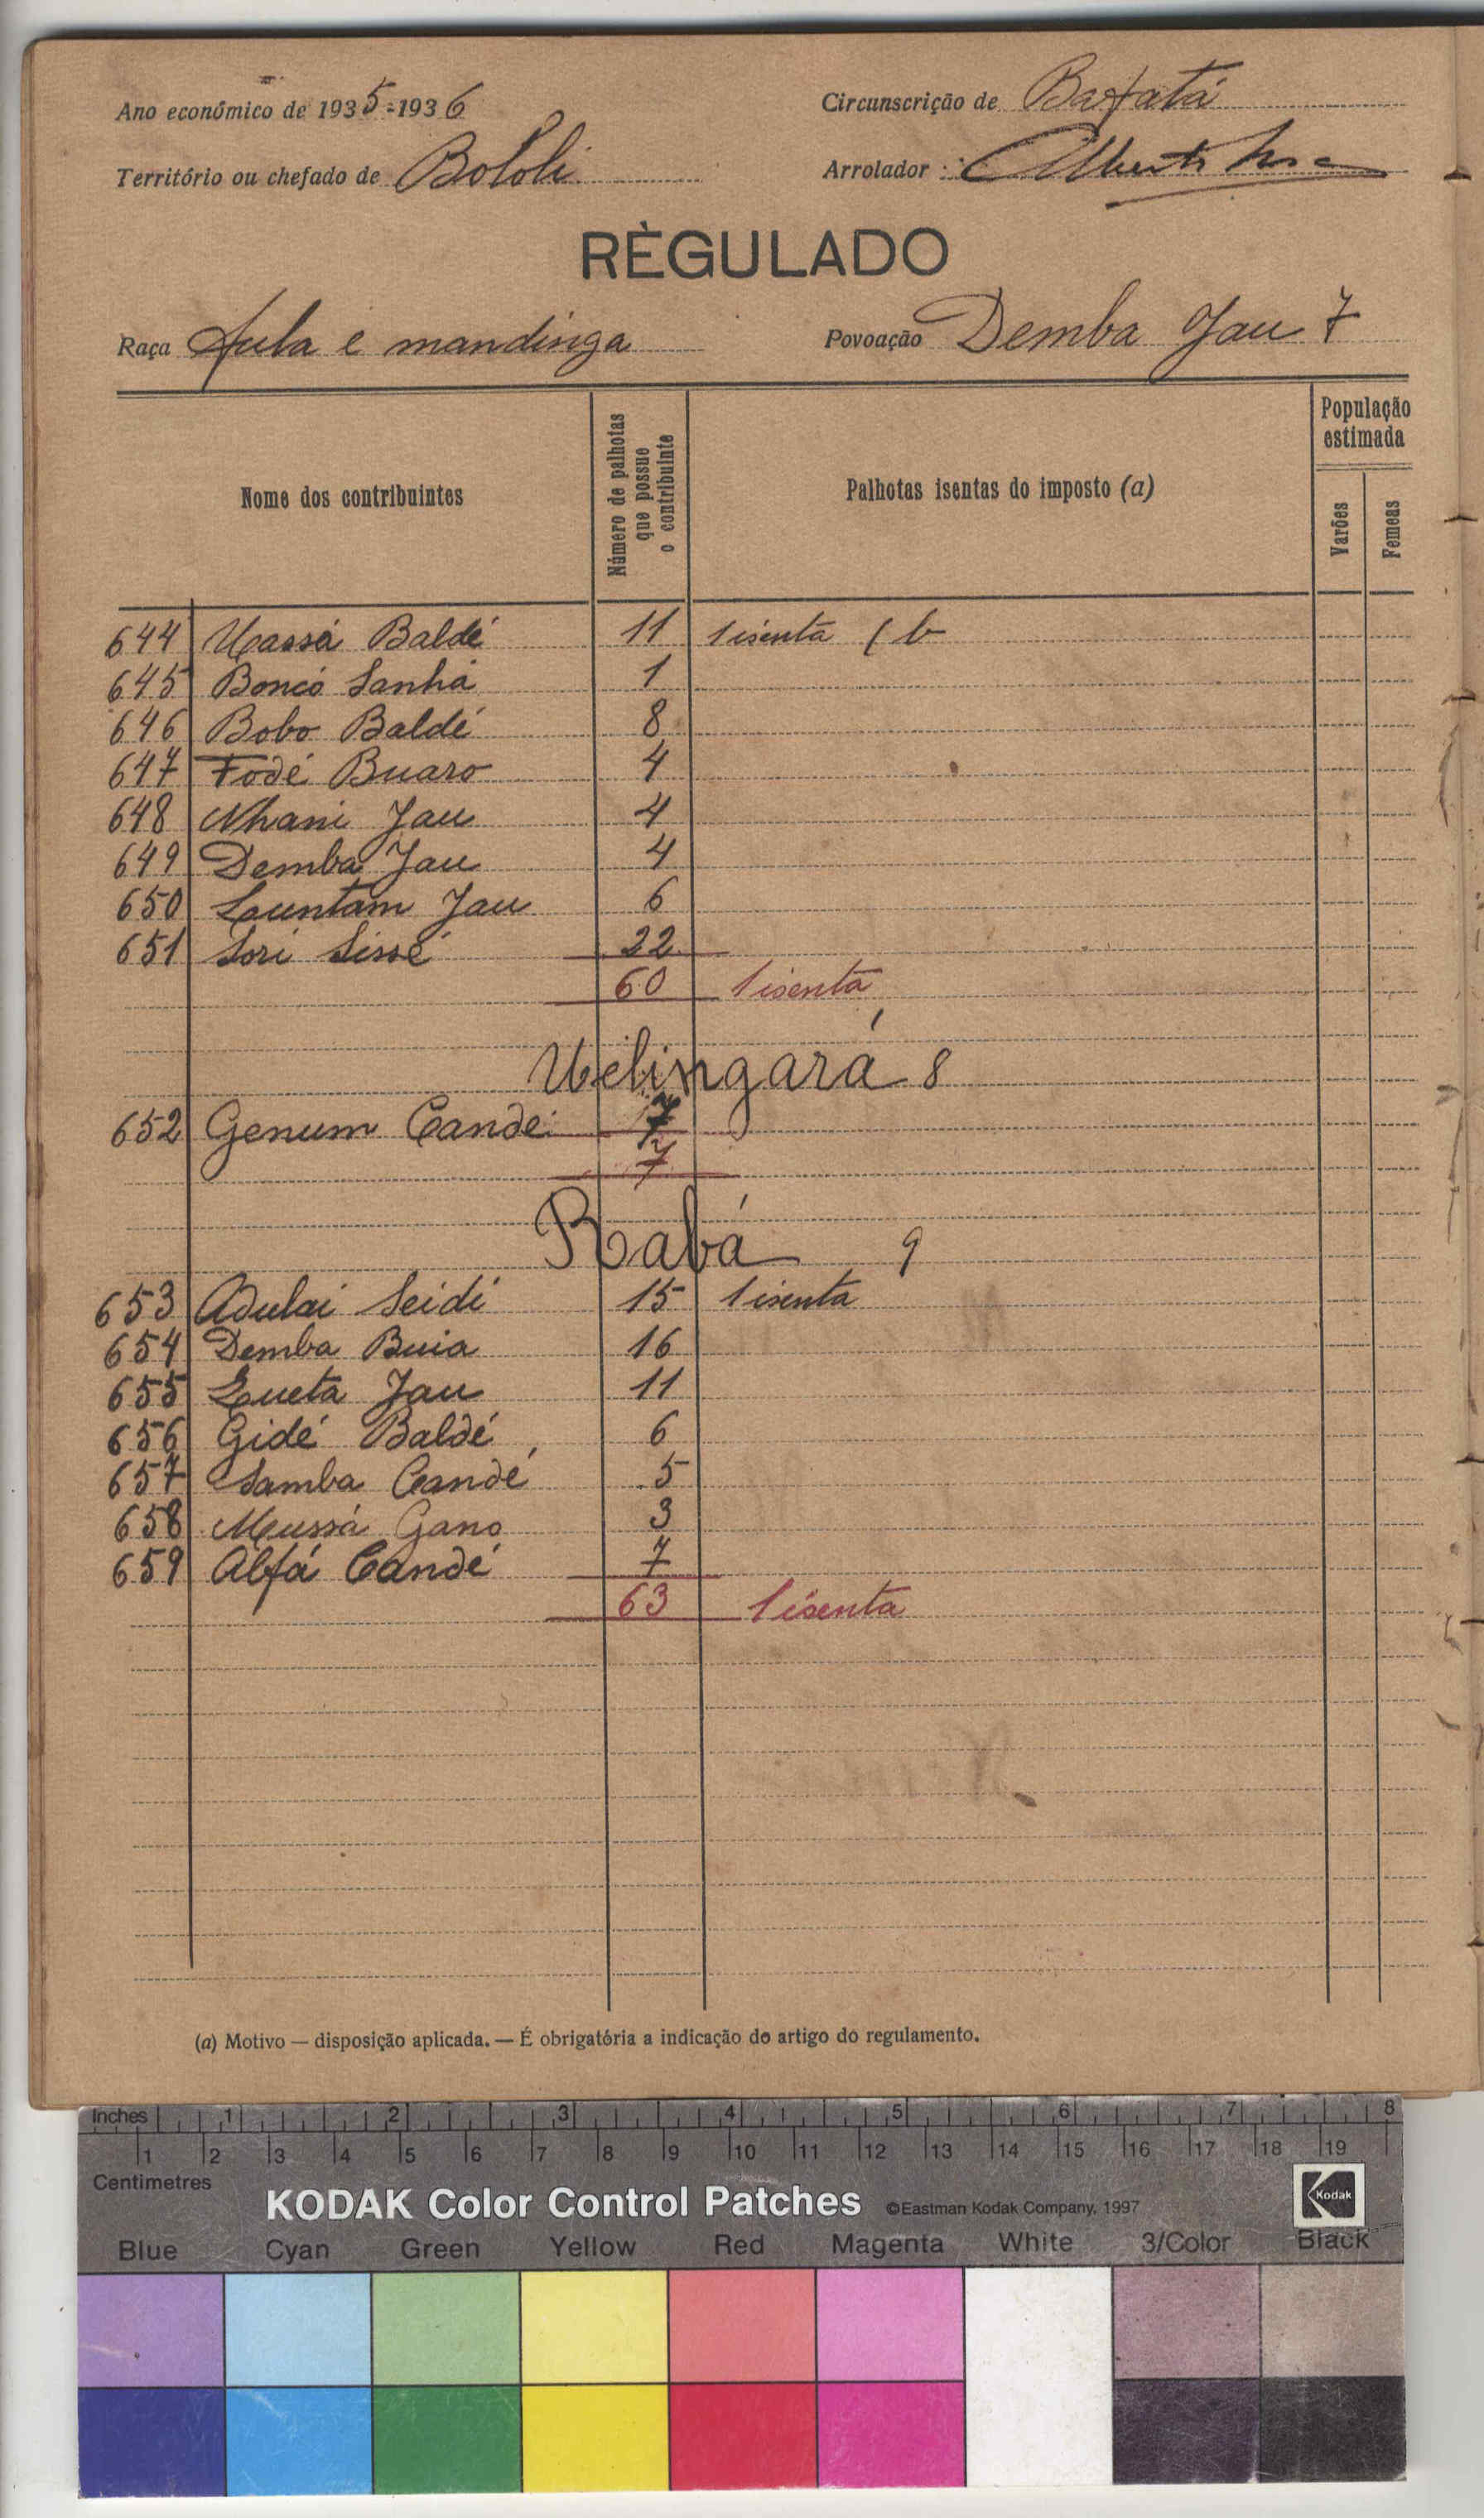 Ano económico de 1935-1936
Circunscrição de Bafatá
Território ou chefado de Bololi
Arrolador: Alberto
RÈGULADO
Raça Fula e mandinga
Povoação Demba Jau 7
Nome dos contribuintes
Número de palhotas que possue o contribuinte
Palhotas isentas do imposto (a)
População estimada
Varões
Femeas
644 Uassá Baldé 11 1 isenta ( b
645 Boncó Sanhá 1
646 Bobo Baldé 8
647 Fodé Buaro 4
648 Nhani Jau 4
649 Demba Jau 4
650 Launtam Jau 6
651 Sori Sissé 22
60 1 isenta
Uelingará 8
652 Genum Cande 7
7
Rabá 9
653 Adulai Seidi 15 1 isenta
654 Demba Buia 16
655 Queta Jau 11
656 Gidé Baldé 6
657 Samba Candé 5
658 Mussá Gano 3
659 Alfá Candé 7
63 1 isenta
(a) Motivo — disposição aplicada. — É obrigatória a indicação do artigo do regulamento.
Inches 1 2 3 4 5 6 7 8
1 2 3 4 5 6 7 8 9 10 11 12 13 14 15 16 17 18 19
Centimetres
KODAK Color Control Patches ©Eastman Kodak Company, 1997
Kodak
Blue Cyan Green Yellow Red Magenta White 3/Color Black